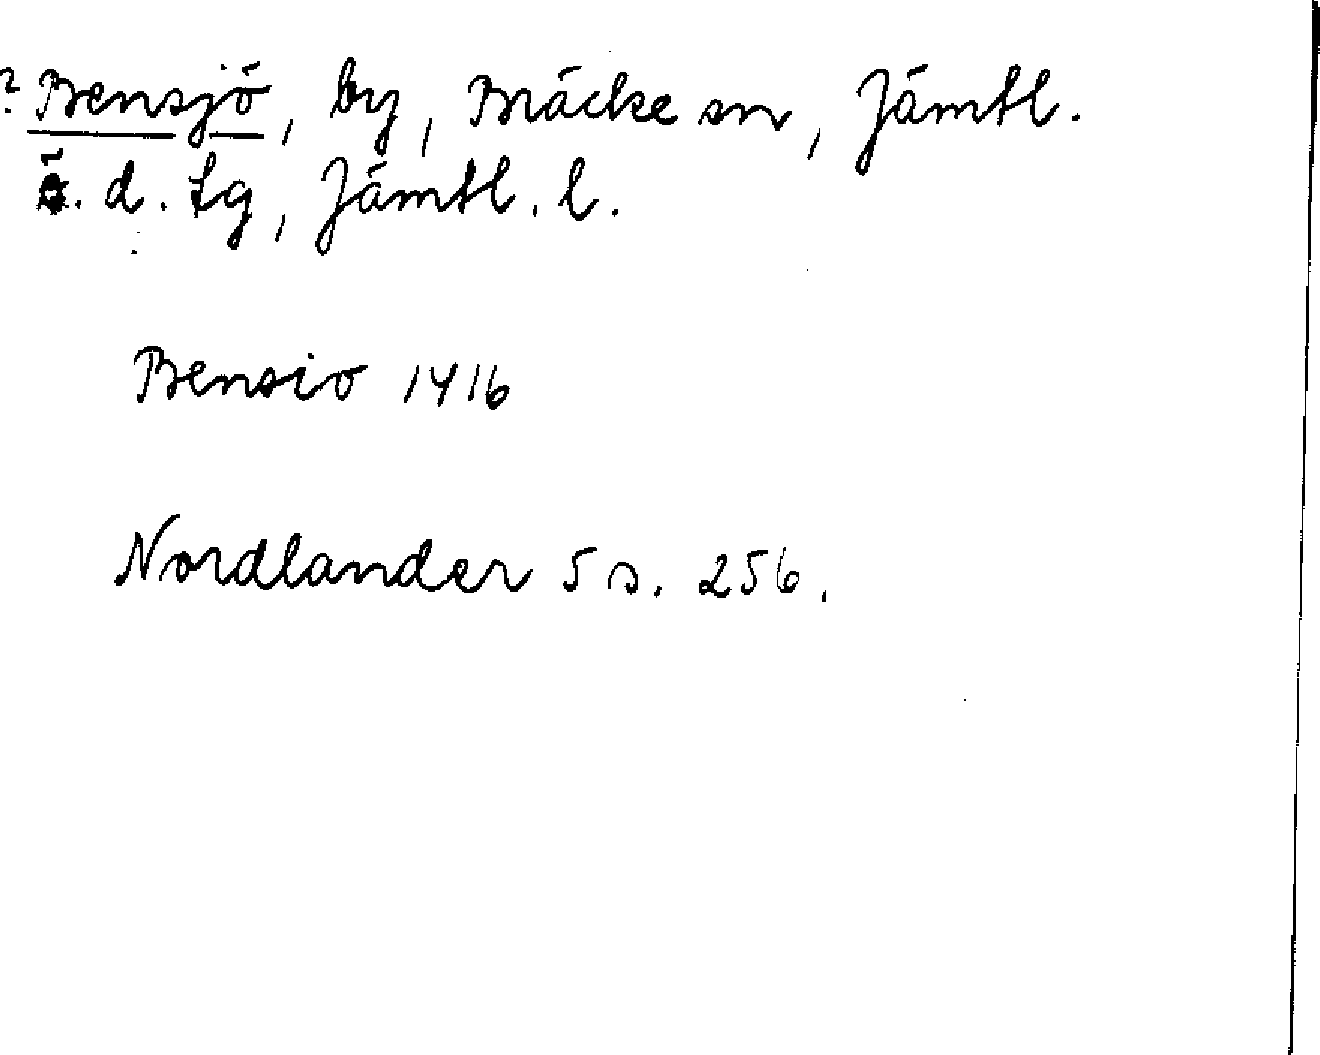 ? Bensjö, by, Bräcke sn, Jämtl.
ö. d. tg, Jämtl. l.
Bensio 1416
Nordlander 5 s. 256.